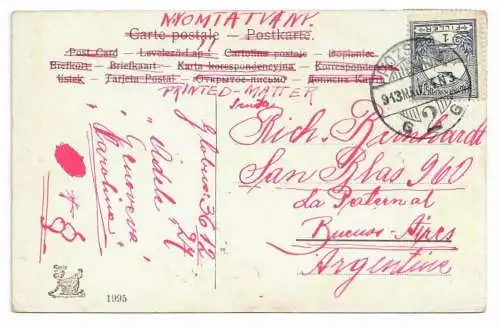 NYOMTATVÁNY
Carte postale — Postkarte.
Post Card — Levelező-Lap — Cartolina postale — Dopisnice
Brefkort — Briefkaart — Karta korespondencyjna — Korrespondenzkarte
listek — Tarjeta Postal — Открытое письмо — Дописна Карта
PRINTED-MATTER
FILLER
1
913
2
G G
Rich. Reinhardt
San Blas 960
La Paternal
Buenos Aires
Argentina
Globus 3612
"Adele" 27
Genoveva
Karolina"
8
Serie
1995